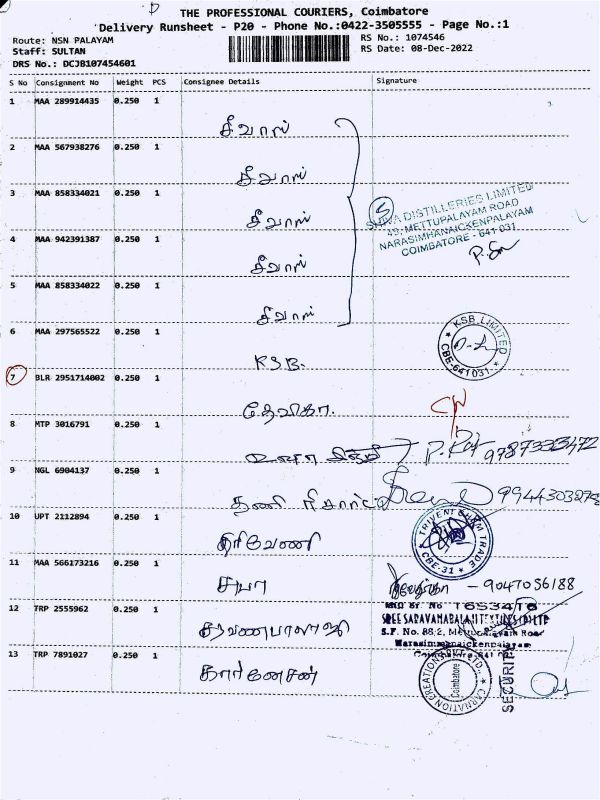 THE PROFESSIONAL COURIERS, Coimbatore
Delivery Runsheet - P20 - Phone No.:0422-3505555 - Page No.:1
Route: NSN PALAYAM
RS No.: 1074546
Staff: SULTAN
RS Date: 08-Dec-2022
DRS No.: DCJB107454601
S No Consignment No Weight PCS Consignee Details Signature
1 MAA 289914435 0.250 1
சிவாஸ்
2 MAA 567938276 0.250 1
சிவாஸ்
3 MAA 858334021 0.250 1
சிவாஸ்
5
SHIVA DISTILLERIES LIMITED
49, METTUPALAYAM ROAD
NARASIMHANAICKENPALAYAM
COIMBATORE - 641 031
4 MAA 942391387 0.250 1
சிவாஸ்
5 MAA 858334022 0.250 1
சிவாஸ்
6 MAA 297565522 0.250 1
KSB.
KSB LIMITED
CBE-641 031
7 BLR 2951714002 0.250 1
தேவிகா.
8 MTP 3016791 0.250 1
9 NGL 6904137 0.250 1
தணி
9944303278
10 UPT 2112894 0.250 1
திரிவேணி
CBE-31
11 MAA 566173216 0.250 1
சுபா
- 9047056188
12 TRP 2555962 0.250 1
சரவணபாலாஜி
S.F. No. 86/2, Mettupalayam Road
13 TRP 7891027 0.250 1
கார்னேசன்
CARNATION CREATIONS PVT. LTD.,
Coimbatore
SECURITY